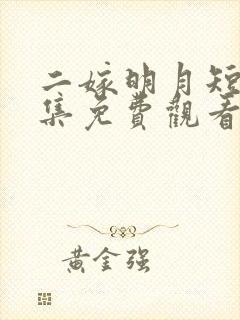 二嫁明月短
集免費觀看
黄金强